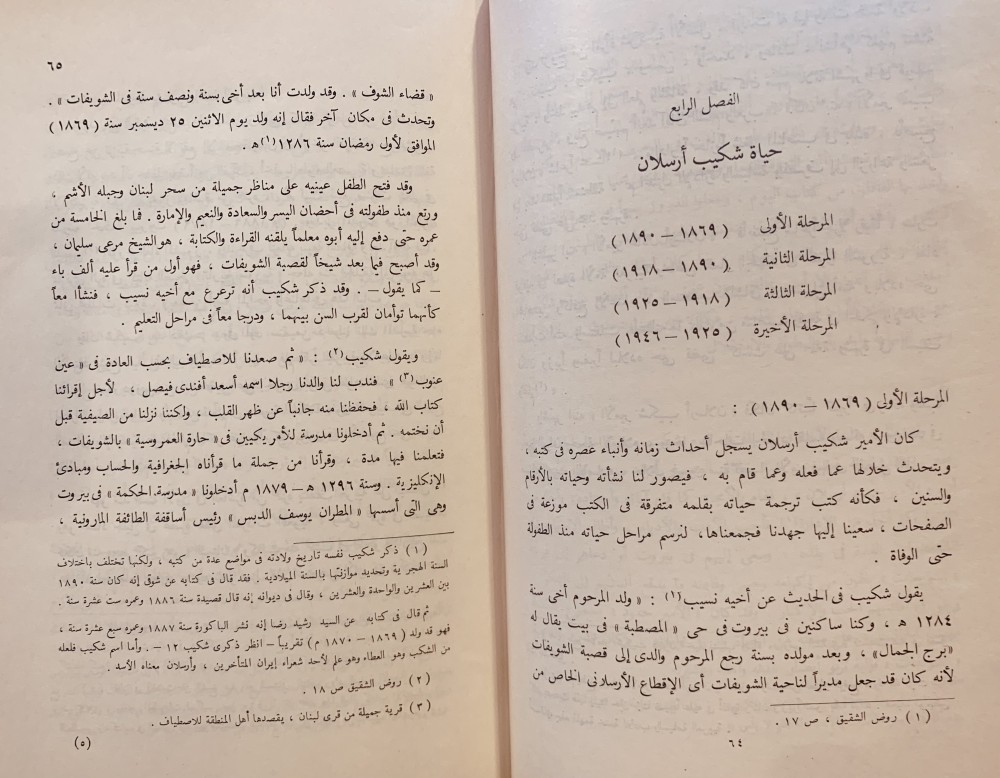 الفصل الرابع
حياة شكيب أرسلان
المرحلة الأولى ( ١٨٦٩ – ١٨٩٠ )
المرحلة الثانية ( ١٨٩٠ – ١٩١٨ )
المرحلة الثالثة ( ١٩١٨ – ١٩٢٥ )
المرحلة الأخيرة ( ١٩٢٥ – ١٩٤٦ )
المرحلة الأولى ( ١٨٦٩ – ١٨٩٠ ) :
كان الأمير شكيب أرسلان يسجل أحداث زمانه وأنباء عصره فى كتبه ،
ويتحدث خلالها عما فعله وعما قام به ، فيصور لنا نشأته وحياته بالأرقام
والسنين ، فكأنه كتب ترجمة حياته بقلمه متفرقة فى الكتب موزعة فى
الصفحات ، سعينا إليها جهدنا فجمعناها، لنرسم مراحل حياته منذ الطفولة
حتى الوفاة .
يقول شكيب فى الحديث عن أخيه نسيب(١) : « ولد المرحوم أخى سنة
١٢٨٤ ه ، وكنا ساكنين فى بيروت فى حى « المصطبة » فى بيت يقال له
«برج الجمال» ، وبعد مولده بسنة رجع المرحوم والدى إلى قصبة الشويفات
لأنه كان قد جعل مديراً لناحية الشويفات أى الإقطاع الأرسلانى الخاص من
(١) روض الشقيق ، ص ١٧ .
٦٤
٦٥
« قضاء الشوف » . وقد ولدت أنا بعد أخى بسنة ونصف سنة فى الشويفات » .
وتحدث فى مكان آخر فقال إنه ولد يوم الاثنين ٢٥ ديسمبر سنة (١٨٦٩)
الموافق لأول رمضان سنة ١٢٨٦(١) ه .
وقد فتح الطفل عينيه على مناظر جميلة من سحر لبنان وجبله الأشم ،
ورتع منذ طفولته فى أحضان اليسر والسعادة والنعيم والإمارة . فما بلغ الخامسة من
عمره حتى دفع إليه أبوه معلماً يلقنه القراءة والكتابة ، هو الشيخ مرعى سليمان ،
وقد أصبح فيما بعد شيخاً لقصبة الشويفات ، فهو أول من قرأ عليه ألف باء
– كما يقول – . وقد ذكر شكيب أنه ترعرع مع أخيه نسيب ، فنشأا معاً
كأنهما توأمان لقرب السن بينهما ، ودرجا معاً فى مراحل التعليم .
ويقول شكيب(٢) : « ثم صعدنا للاصطياف بحسب العادة فى « عين
عنوب(٣) » فندب لنا والدنا رجلا اسمه أسعد أفندى فيصل ، لأجل إقرائنا
كتاب الله ، فحفظنا منه جانباً عن ظهر القلب ، ولكننا نزلنا من الصيفية قبل
أن نختمه . ثم أدخلونا مدرسة للأمريكيين فى « حارة العمروسية » بالشويفات ،
فتعلمنا فيها مدة ، وقرأنا من جملة ما قرأناه الجغرافية والحساب ومبادئ
الإنكليزية . وسنة ١٢٩٦ ه – ١٨٧٩ م أدخلونا « مدرسة الحكمة » فى بيروت
وهى التى أسسها « المطران يوسف الدبس » رئيس أساقفة الطائفة المارونية ،
(١) ذكر شكيب نفسه تاريخ ولادته فى مواضع عدة من كتبه ، ولكنها تختلف باختلاف
السنة الهجرية وتحديد موازنتها بالسنة الميلادية . فقد قال فى كتابه عن شوقى إنه كان سنة ١٨٩٠
بين العشرين والواحدة والعشرين ، وقال فى ديوانه إنه قال قصيدة سنة ١٨٨٦ وعمره ست عشرة سنة .
ثم قال فى كتابه عن السيد رشيد رضا إنه نشر الباكورة سنة ١٨٨٧ وعمره سبع عشرة سنة ،
فهو قد ولد (١٨٦٩ – ١٨٧٠ م) تقريباً – انظر ذكرى شكيب ١٢ – . وأما اسم شكيب فلعله
من الشكب وهو العطاء وهو علم لأحد شعراء إيران المتأخرين ، وأرسلان معناه الأسد .
(٢) روض الشقيق ص ١٨ .
(٣) قرية جميلة من قرى لبنان ، يقصدها أهل المنطقة للاصطياف .
(٥)